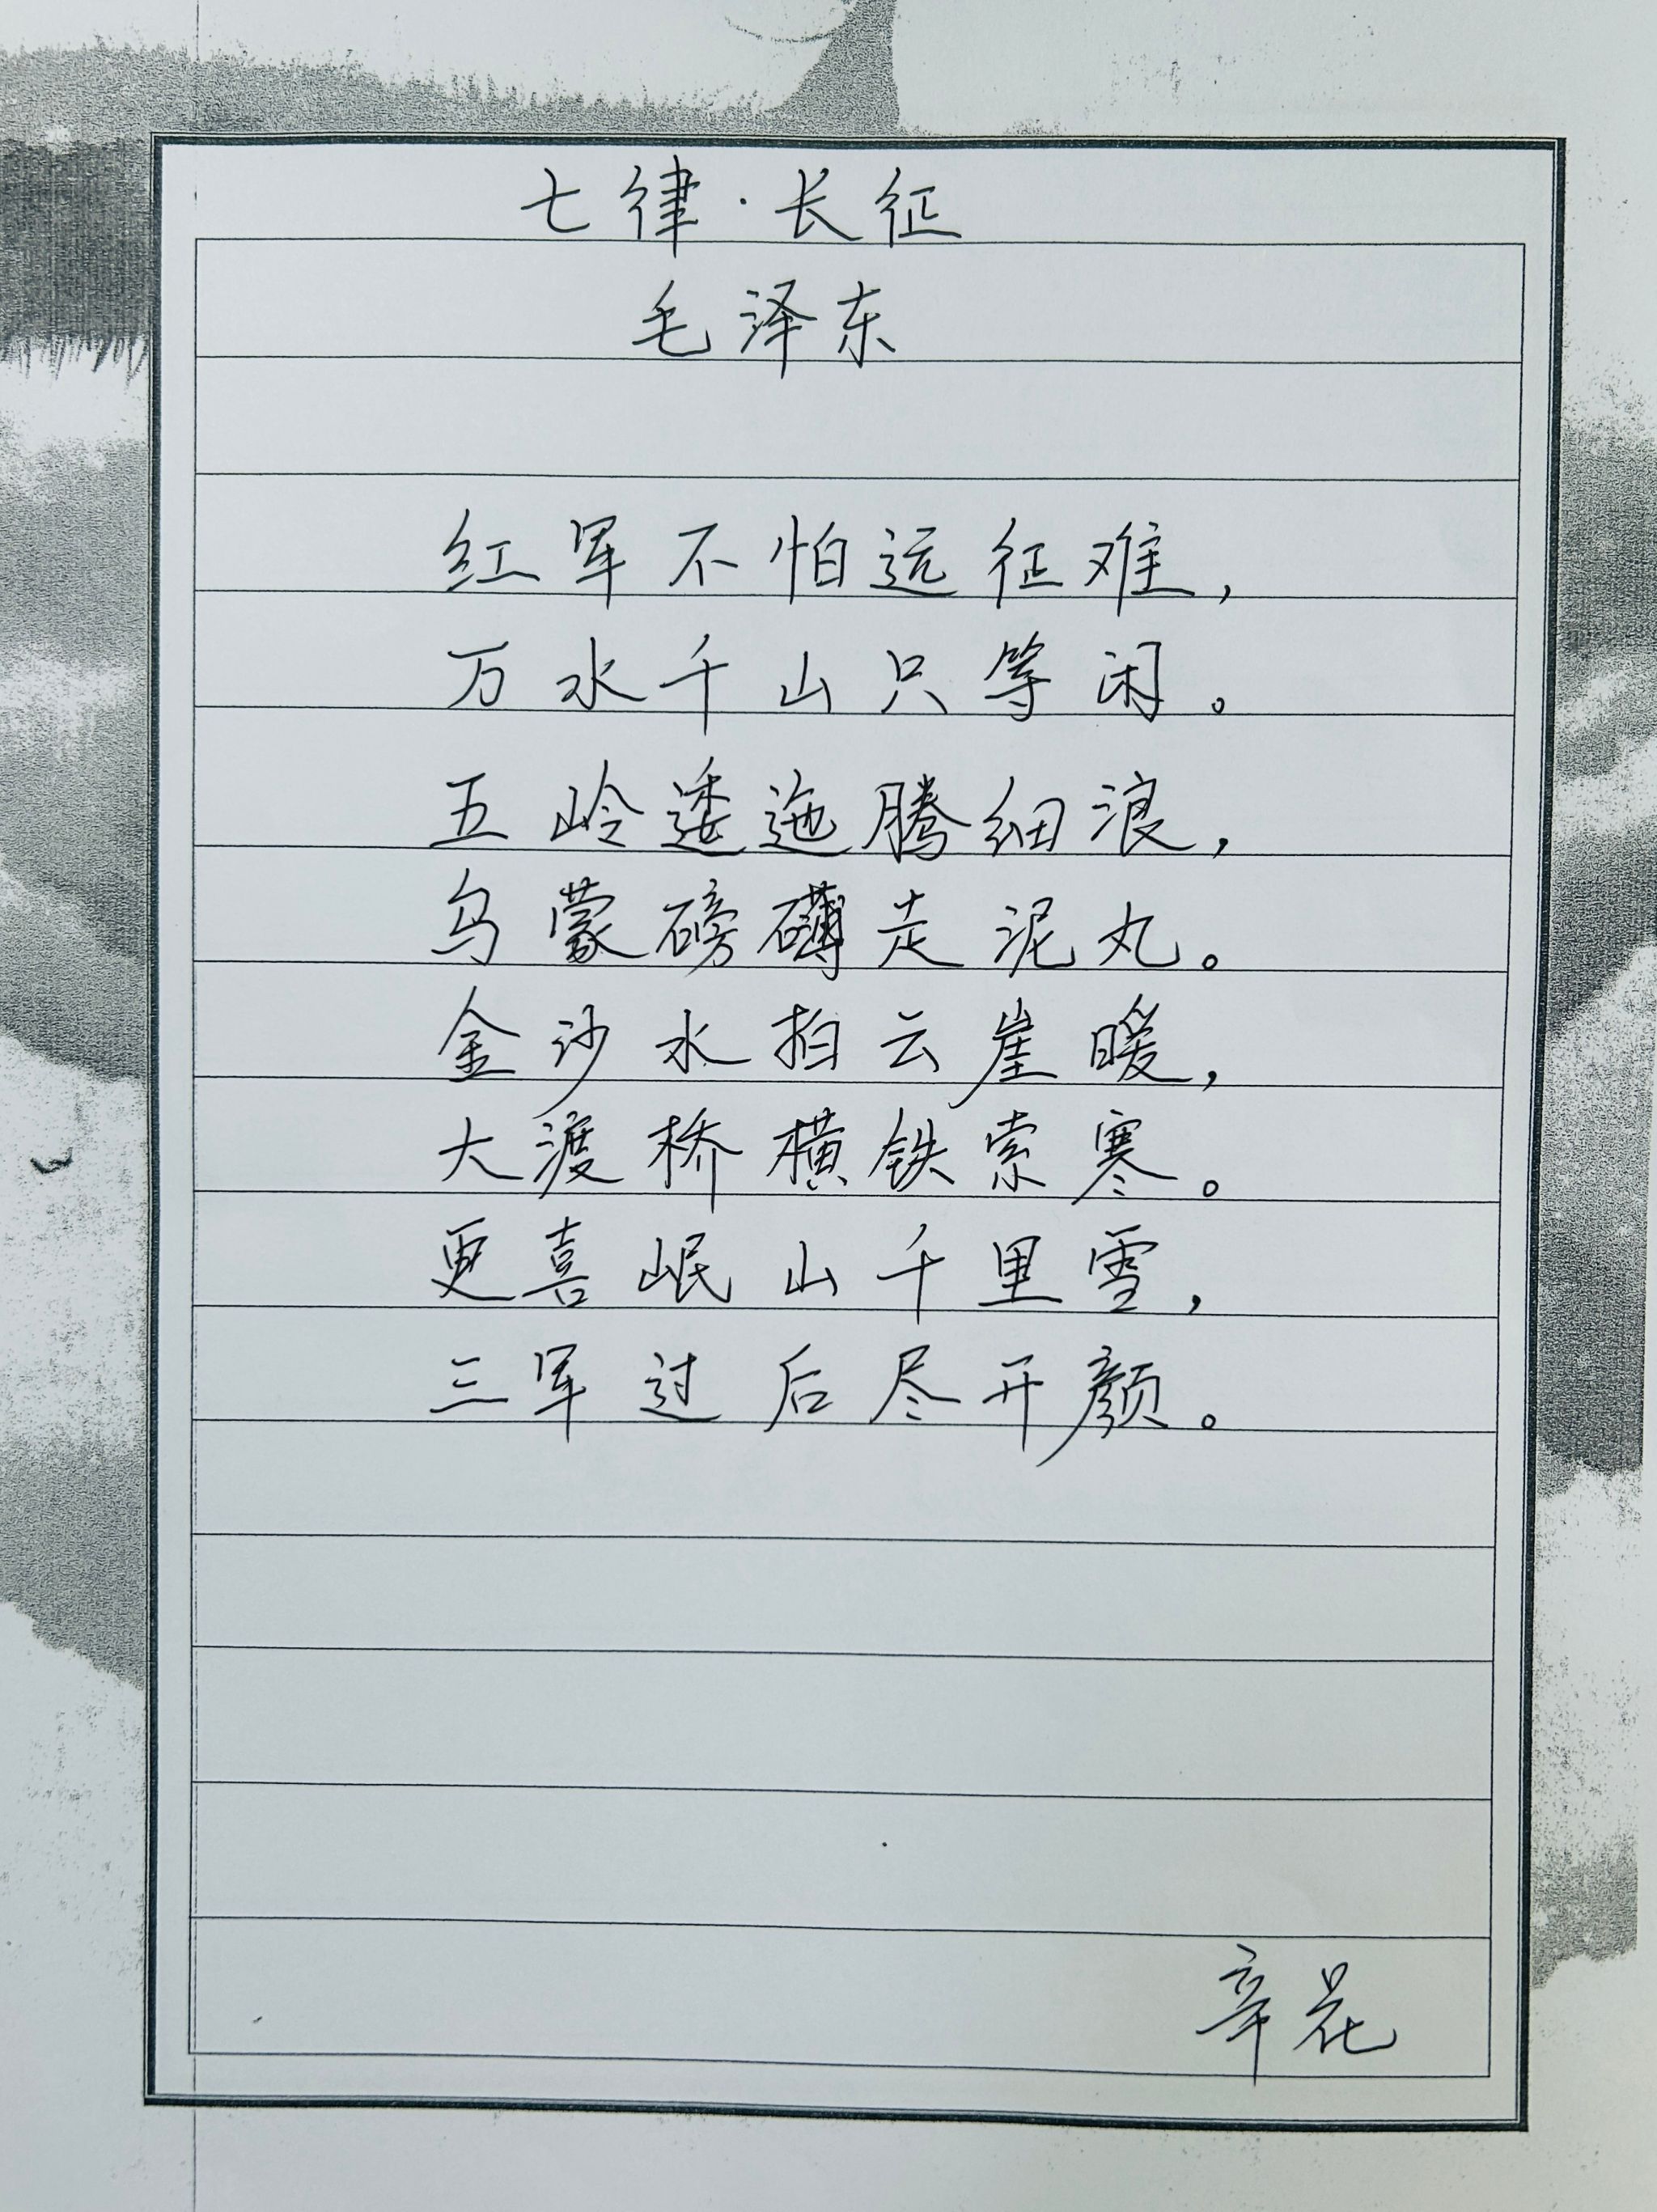 七律·长征
毛泽东
红军不怕远征难，
万水千山只等闲。
五岭逶迤腾细浪，
乌蒙磅礴走泥丸。
金沙水拍云崖暖，
大渡桥横铁索寒。
更喜岷山千里雪，
三军过后尽开颜。
辛花